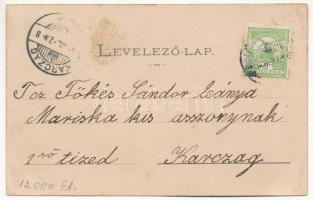 KARCZAG
LEVELEZŐ-LAP.
Tcz Tőkés Sándor leánya
Mariska kis asszonynak
1ső tized Karczag
12000 Ft.